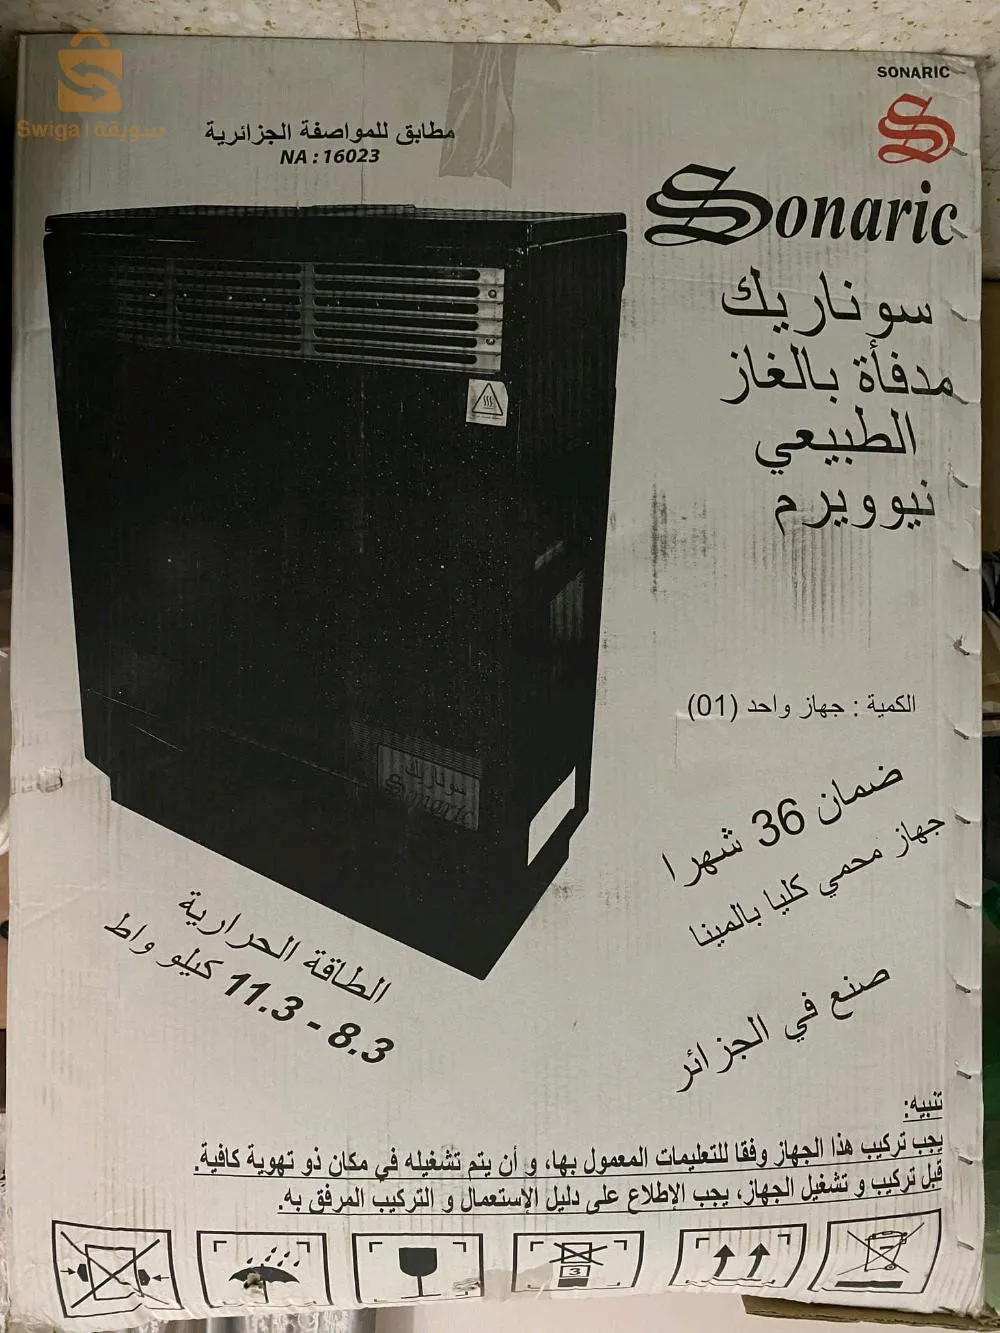 SONARIC
Swiga | سويقة
مطابق للمواصفة الجزائرية
NA : 16023
Sonaric
سوناريك
مدفأة بالغاز
الطبيعي
نيوويرم
سوناريك
Sonaric
الكمية : جهاز واحد (01)
ضمان 36 شهرا
جهاز محمي كليا بالمينا
صنع في الجزائر
الطاقة الحرارية
8.3 - 11.3 كيلو واط
تنبيه:
يجب تركيب هذا الجهاز وفقا للتعليمات المعمول بها، و أن يتم تشغيله في مكان ذو تهوية كافية.
قبل تركيب و تشغيل الجهاز، يجب الإطلاع على دليل الإستعمال و التركيب المرفق به.
3